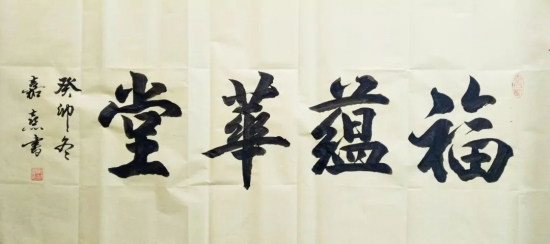 福蘊華堂
癸卯冬
嘉熹書